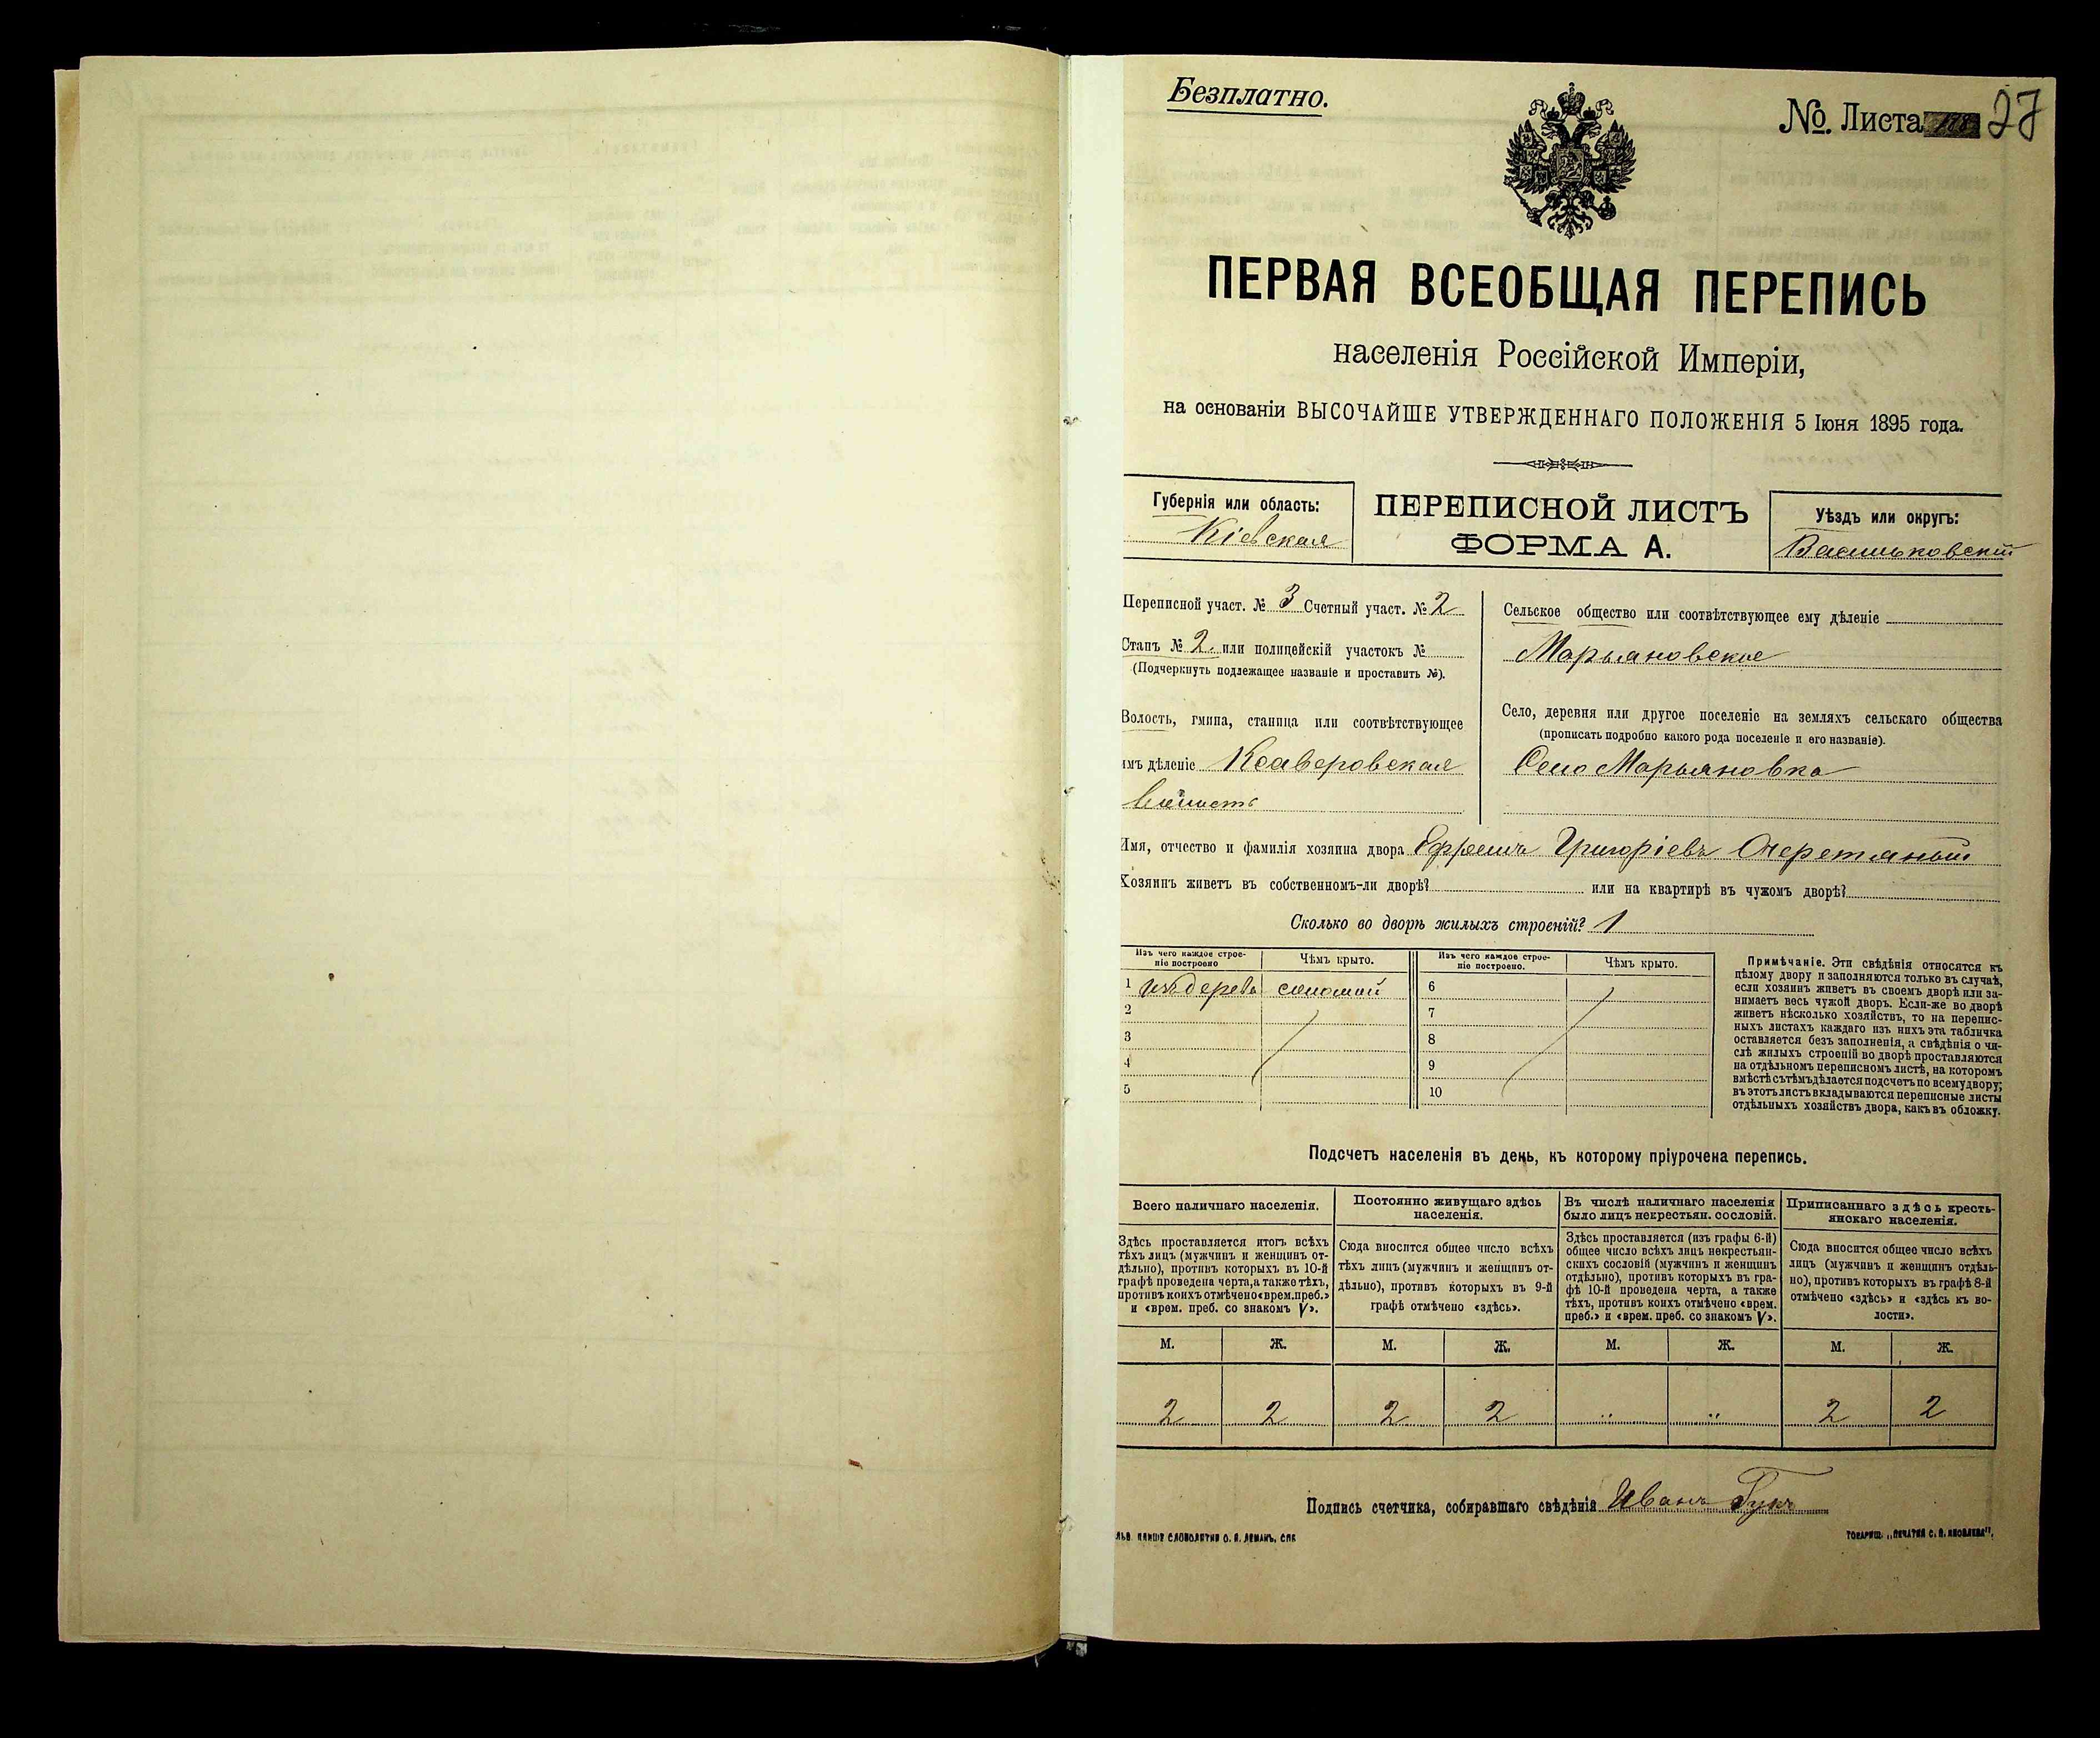 Безплатно.
№. Листа 27
ПЕРВАЯ ВСЕОБЩАЯ ПЕРЕПИСЬ
населенія Россійской Имперіи,
на основаніи ВЫСОЧАЙШЕ УТВЕРЖДЕННАГО ПОЛОЖЕНІЯ 5 Іюня 1895 года.
Губернія или область:
Кіевская
ПЕРЕПИСНОЙ ЛИСТЪ
ФОРМА А.
Уѣздъ или округъ:
Васильковскій
Переписной участ. № 3 Счетный участ. № 2
Станъ № 2. или полицейскій участокъ №
(Подчеркнуть подлежащее названіе и проставить №).
Волость, гмина, станица или соотвѣтствующее
имъ дѣленіе Ксаверовская
волость
Сельское общество или соотвѣтствующее ему дѣленіе
Марьяновское
Село, деревня или другое поселеніе на земляхъ сельскаго общества
(прописать подробно какого рода поселеніе и его названіе).
Село Марьяновка
Имя, отчество и фамилія хозяина двора Ефремъ Григоріевъ Очеретяный
Хозяинъ живетъ въ собственномъ-ли дворѣ? или на квартирѣ въ чужомъ дворѣ?
Сколько во дворѣ жилыхъ строеній? 1
Изъ чего каждое строе-
ніе построено
Чѣмъ крыто.
Изъ чего каждое строе-
ніе построено.
Чѣмъ крыто.
1 изъ дерева соломой 6
2 7
3 8
4 9
5 10
Примѣчаніе. Эти свѣдѣнія относятся къ
цѣлому двору и заполняются только въ случаѣ,
если хозяинъ живетъ въ своемъ дворѣ или за-
нимаетъ весь чужой дворъ. Если-же во дворѣ
живетъ нѣсколько хозяйствъ, то на перепис-
ныхъ листахъ каждаго изъ нихъ эта табличка
оставляется безъ заполненія, а свѣдѣнія о чи-
слѣ жилыхъ строеній во дворѣ проставляются
на отдѣльномъ переписномъ листѣ, на которомъ
вмѣстѣ съ тѣмъ дѣлается подсчетъ по всему двору;
въ этотъ листъ вкладываются переписные листы
отдѣльныхъ хозяйствъ двора, какъ въ обложку.
Подсчетъ населенія въ день, къ которому пріурочена перепись.
Всего наличнаго населенія.
Здѣсь проставляется итогъ всѣхъ
тѣхъ лицъ (мужчинъ и женщинъ от-
дѣльно), противъ которыхъ въ 10-й
графѣ проведена черта, а также тѣхъ,
противъ коихъ отмѣчено «врем. преб.»
и «врем. преб. со знакомъ V».
Постоянно живущаго здѣсь
населенія.
Сюда вносится общее число всѣхъ
тѣхъ лицъ (мужчинъ и женщинъ от-
дѣльно), противъ которыхъ въ 9-й
графѣ отмѣчено «здѣсь».
Въ числѣ наличнаго населенія
было лицъ некрестьян. сословій.
Здѣсь проставляется (изъ графы 6-й)
общее число всѣхъ лицъ некрестьян-
скихъ сословій (мужчинъ и женщинъ
отдѣльно), противъ которыхъ въ гра-
фѣ 10-й проведена черта, а также
тѣхъ, противъ коихъ отмѣчено «врем.
преб.» и «врем. преб. со знакомъ V».
Приписаннаго здѣсь кресть-
янскаго населенія.
Сюда вносится общее число всѣхъ
лицъ (мужчинъ и женщинъ отдѣль-
но), противъ которыхъ въ графѣ 8-й
отмѣчено «здѣсь» и «здѣсь къ во-
лости».
М. Ж. М. Ж. М. Ж. М. Ж.
2 2 2 2 " " 2 2
Подпись счетчика, собиравшаго свѣдѣнія Иванъ Гукъ
СЛОВОЛИТНИ О. И. ЛЕМАНЪ, СПБ
ТОВАРИЩ. „ПЕЧАТНЯ С. П. ЯКОВЛЕВА".